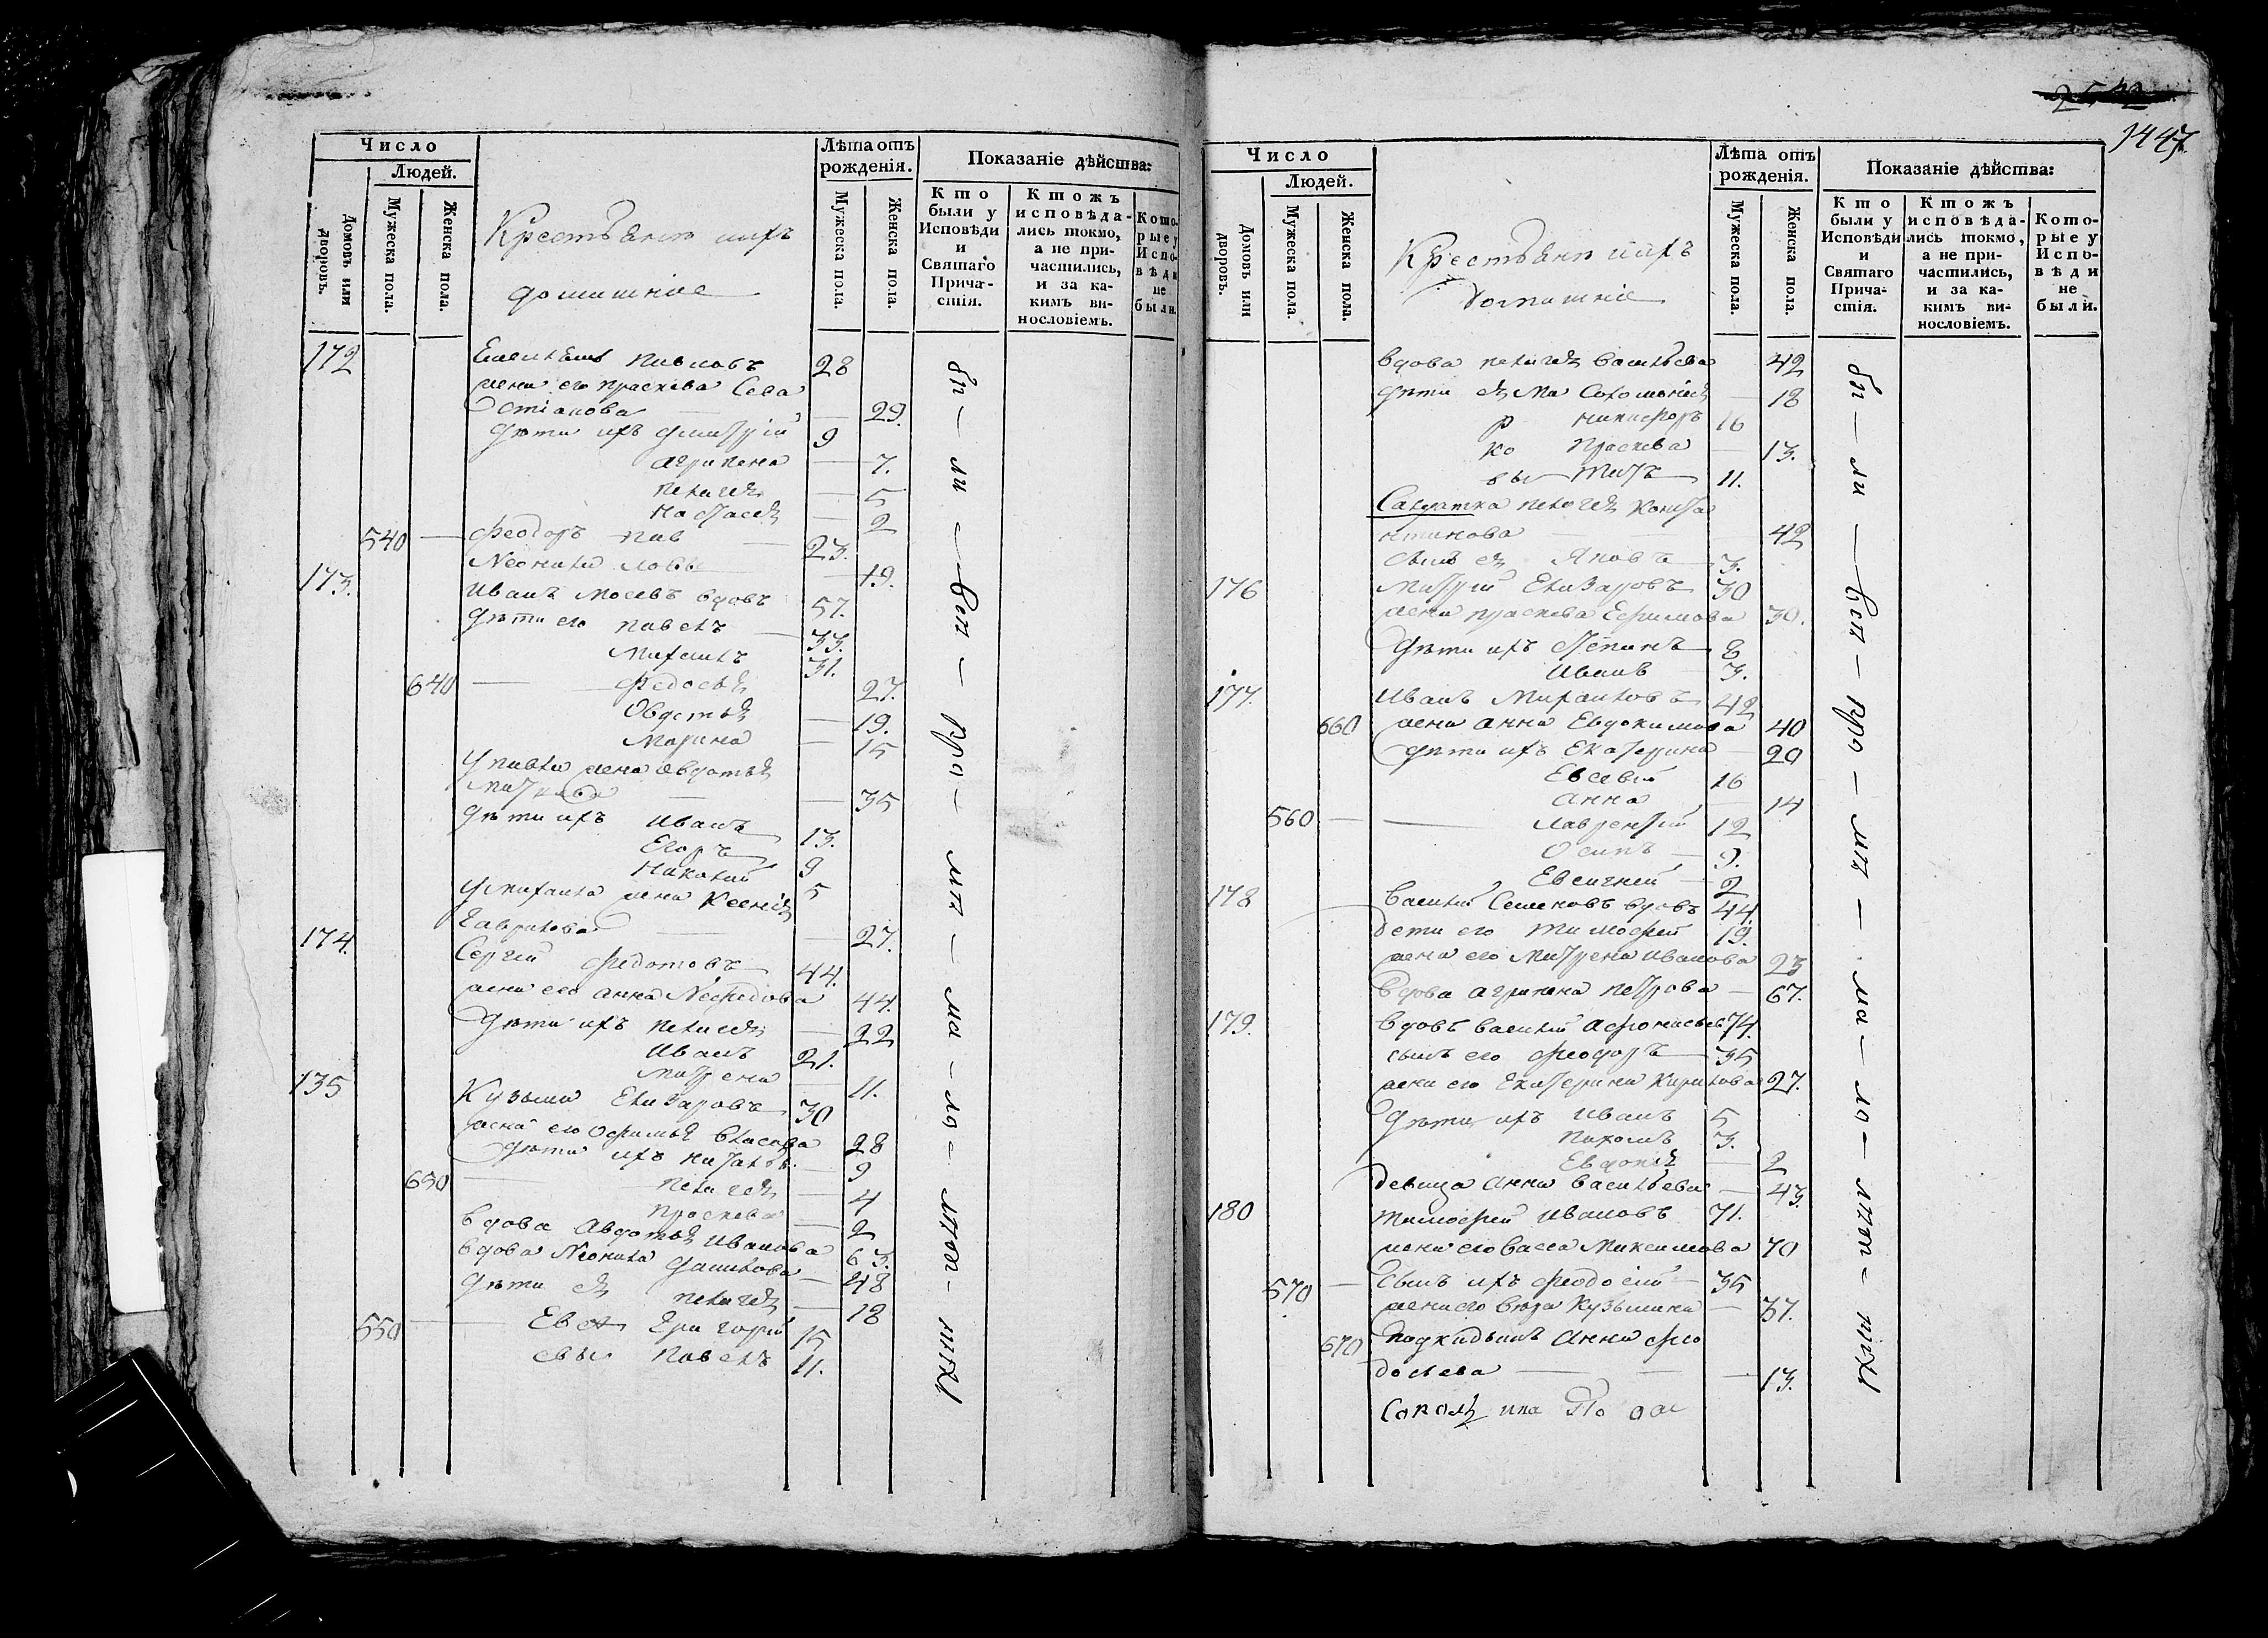 Число
Людей.
Домовъ или дворовъ.
Мужеска пола.
Женска пола.
Крестьяне ихъ
домашніе
Лѣта отъ рожденія.
Мужеска пола.
Женска пола.
Показаніе дѣйства:
Кто были у Исповѣди и Святаго Прича-стія.
Ктожъ исповѣда-лись токмо, а не при-частились, и за ка-кимъ ви-нословіемъ.
Кото-рые у Испо-вѣди не были.
172 Емельянъ Павловъ 28
жена его праскева Сева
стіанова — 29.
дѣти ихъ дмитрій 9
агрипена — 7.
пелагея — 5
настасея — 2
540 — феодоръ пав — 23.
Неонила ловы — 19.
173. Иванъ Мосевъ вдовъ 57.
дѣти его павелъ — 33.
Михаилъ 31.
640 — федосья 27.
Овдотья — 19.
Марина — 15
У павла жена овдотья
— 35
дѣти ихъ Иванъ 13.
Егоръ 9
5
У михаила жена Ксенія
Гаврилова — 27.
174. Сергей федотовъ 44.
жена его анна Нефедова 44.
дѣти ихъ пелагея — 22
Иванъ 21.
матрена — 11.
135 Кузьма Елизаровъ 30
жена его офимья власова 28
дѣти ихъ наталья — 9
650 — пелагея — 4
праскева — 2
вдова Авдотья Иванова 63.
вдова Неонила данилова — 48
дѣти ея пелагея — 18
550 — Евсе Григорій 15
евы Павелъ 11.
бы — ли — вси — пра — ми — ма — ло — лѣт — нихъ
1447.
Число
Людей.
Домовъ или дворовъ.
Мужеска пола.
Женска пола.
Крестьяне ихъ
домашніе
Лѣта отъ рожденія.
Мужеска пола.
Женска пола.
Показаніе дѣйства:
Кто были у Исповѣди и Святаго Прича-стія.
Ктожъ исповѣда-лись токмо, а не при-частились, и за ка-кимъ ви-нословіемъ.
Кото-рые у Испо-вѣди не были.
вдова пелагея васильева 42
дѣти ея Ма Соломонія — 18
р никифоръ 16
ко Праскева — 13.
вы Титъ 11.
Салдатка пелагея Конста
нтинова 42
сынъ ея Яковъ 3.
176 Митрій Елизаровъ 30
жена праскева Ефимова 30.
дѣти ихъ Степанъ 8
Иванъ 3.
177. Иванъ Михаиловъ 42
660 жена анна Евдокимова 40
дѣти ихъ Екатерина — 20
Евсевій 16
анна — 14
560 — — лаврентій 12
Осипъ — 9.
Евсигней — 2
178 Василій Семеновъ вдовъ 44.
дети его тимофей 19.
жена его Матрена Иванова 23
вдова агрипена петрова — 67.
179. вдовъ василій афонасьевъ 74.
сынъ его феодоръ — 35
жена его Екатерина Кирилова 27.
дѣти ихъ Иванъ 5
Пахомъ 3.
Евдокия — 2
девица анна васильева — 43.
180 тимофей Ивановъ 71.
жена его Васса Максимова 70
570 — сынъ ихъ феодосій — 35
жена его Кузьмина — 37.
670 подкидышъ Анна фео
досьева — — 13.
бы — ли — вси — пра — ми — ма — ло — лѣт — нихъ